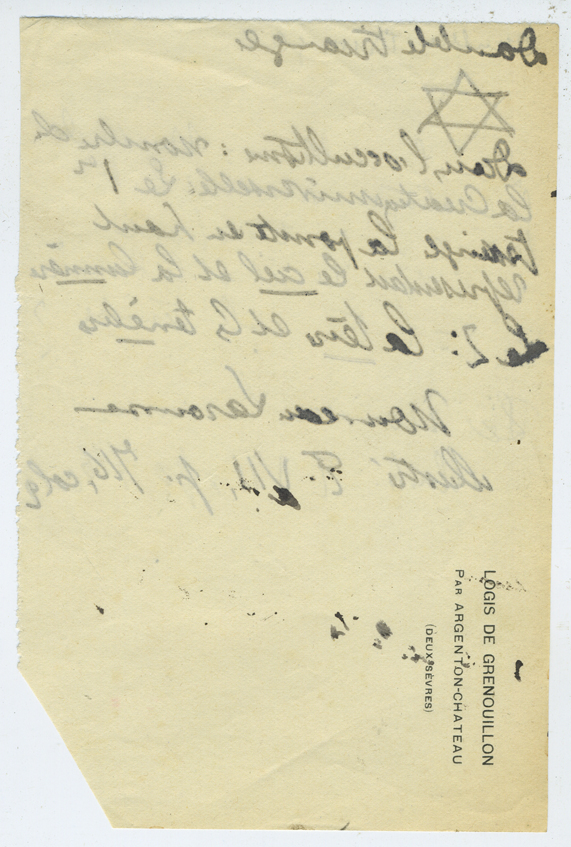 Double triangle
Dans l'occultisme : nombre de
la Création universelle. Le 1er
triangle la pointe en haut
représentait le ciel et la lumière
Le 2 : la terre et les ténèbres
Nouveau Larousse
illustré T. VII, p. 716, col 2
LOGIS DE GRENOUILLON
PAR ARGENTON-CHATEAU
(DEUX-SÈVRES)